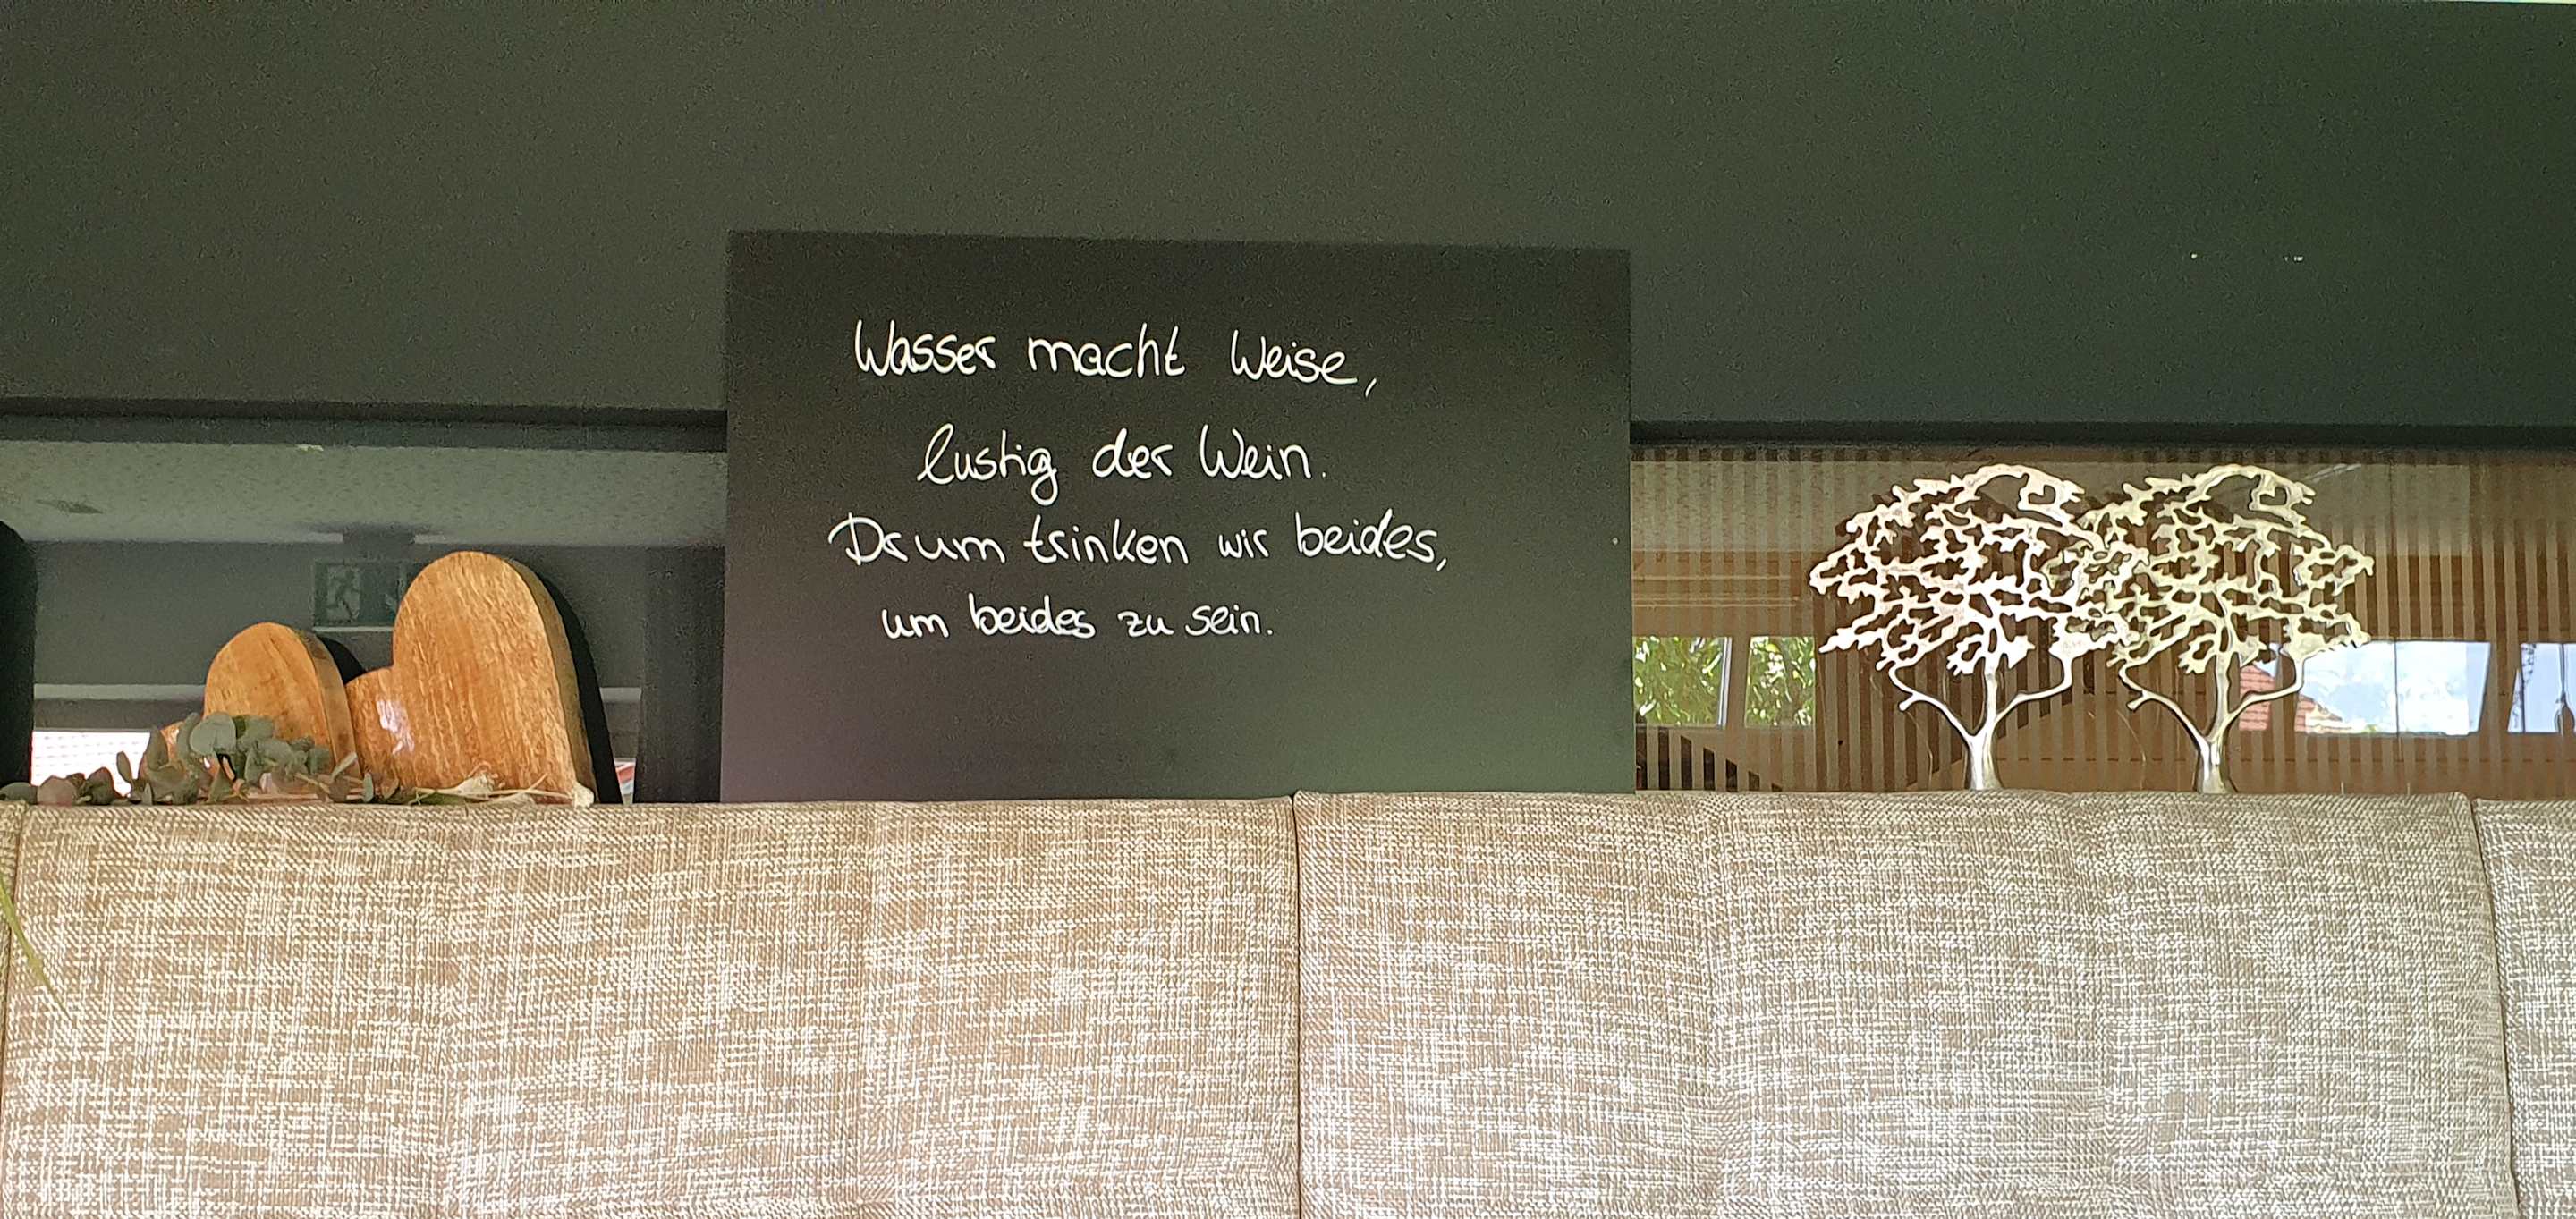 Wasser macht Weise,
lustig der Wein.
Drum trinken wir beides,
um beides zu sein.